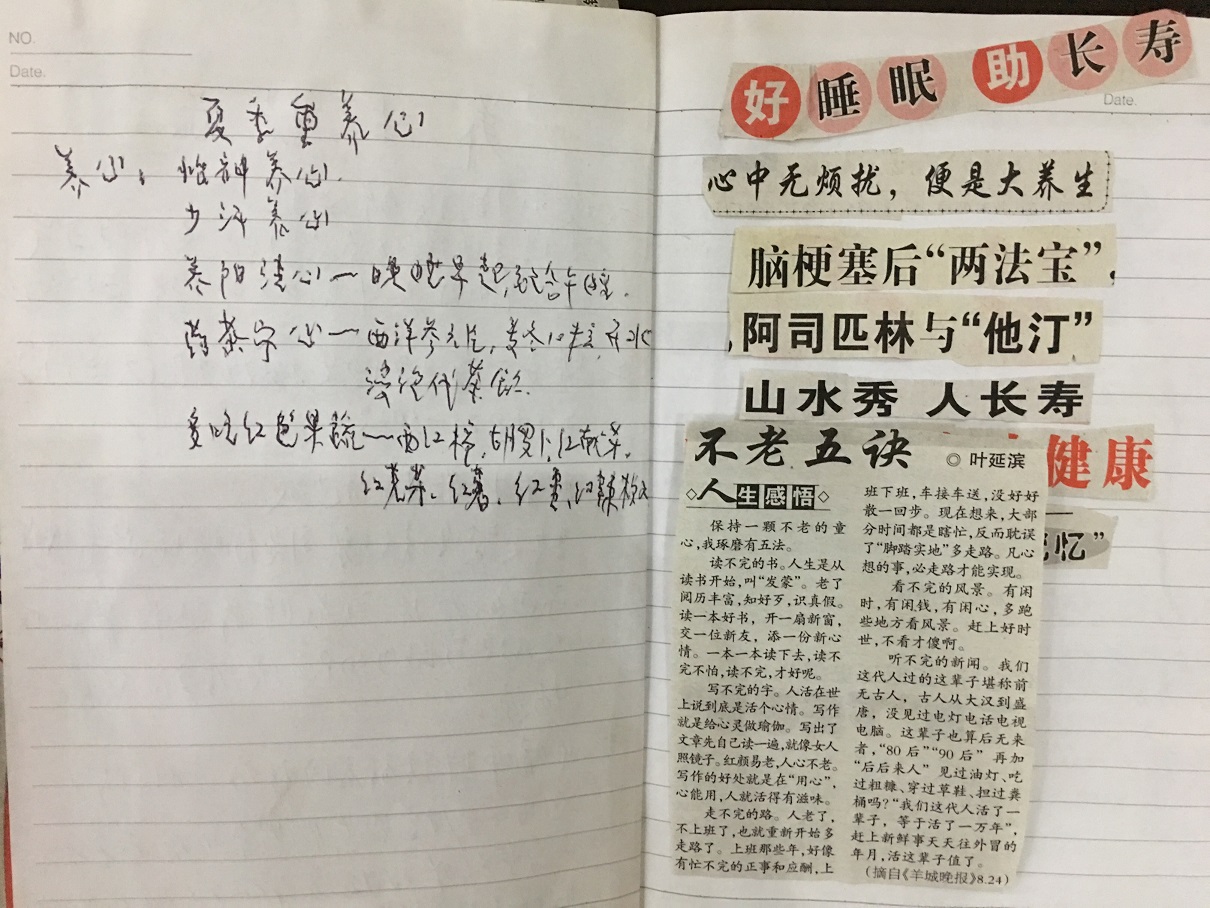 NO.
Date.
夏季重养心
养心：怡神养心.
少汗养心
养阳清心—晚睡早起,结合午睡.
药茶宁心—西洋参3片,麦冬10克,开水
浸泡代茶饮.
多吃红色果蔬—西红柿,胡萝卜,红苋菜.
红薯、红枣、红辣椒
好睡眠 助长寿
Date.
心中无烦扰，便是大养生
脑梗塞后“两法宝”
阿司匹林与“他汀”
山水秀 人长寿
健康
忆”
不老五诀 ◎ 叶延滨
◇人生感悟◇
保持一颗不老的童
心,我琢磨有五法。
读不完的书。人生是从
读书开始,叫“发蒙”。老了
阅历丰富,知好歹,识真假。
读一本好书，开一扇新窗,
交一位新友，添一份新心
情。一本一本读下去,读不
完不怕,读不完,才好呢。
写不完的字。人活在世
上说到底是活个心情。写作
就是给心灵做瑜伽。写出了
文章先自己读一遍,就像女人
照镜子。红颜易老,人心不老。
写作的好处就是在“用心”,
心能用,人就活得有滋味。
走不完的路。人老了,
不上班了,也就重新开始多
走路了。上班那些年,好像
有忙不完的正事和应酬,上
班下班,车接车送,没好好
散一回步。现在想来,大部
分时间都是瞎忙,反而耽误
了“脚踏实地”多走路。凡心
想的事,必走路才能实现。
看不完的风景。有闲
时,有闲钱,有闲心,多跑
些地方看风景。赶上好时
世,不看才傻啊。
听不完的新闻。我们
这代人过的这辈子堪称前
无古人，古人从大汉到盛
唐，没见过电灯电话电视
电脑。这辈子也算后无来
者,“80后”“90后” 再加
“后后来人” 见过油灯、吃
过粗糠、穿过草鞋、担过粪
桶吗?“我们这代人活了一
辈子，等于活了一万年”,
赶上新鲜事天天往外冒的
年月,活这辈子值了。
(摘自《羊城晚报》8.24)